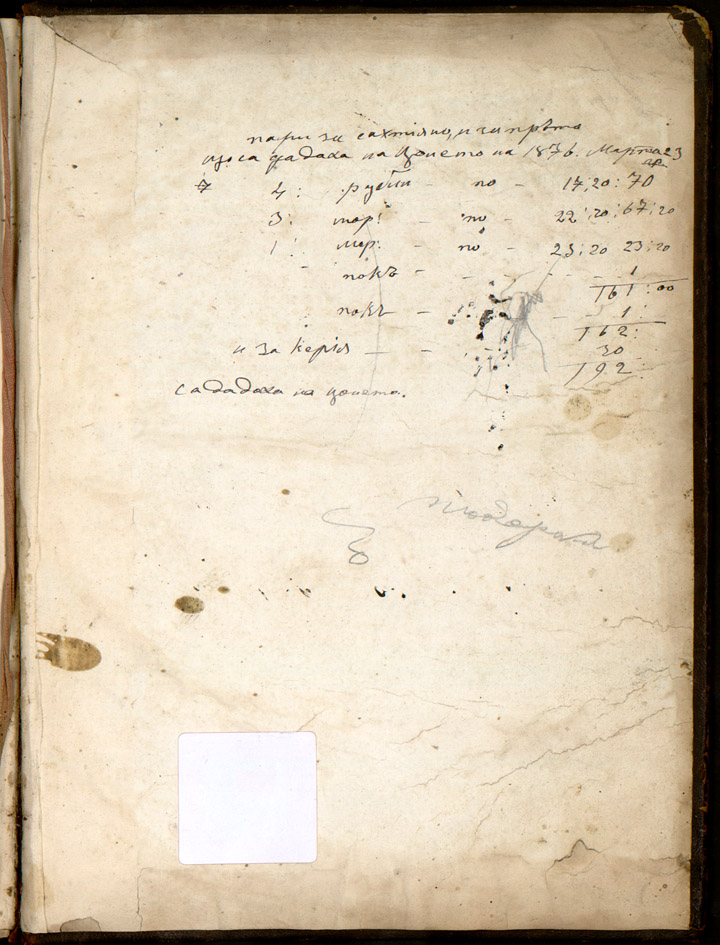 пари за сахтіяно, и за прѣто
що са дадаха на Цонето на 1876. Марта 23
4: рубіи - по - 17,20: 70
3: мор: - по - 22:20: 67:20
1: мор. - по - 23:20 23:20
покъ - - - 1
161:00
покъ - - - 1:
162:
и за керія - - 30
192
са дадоха на цонето.